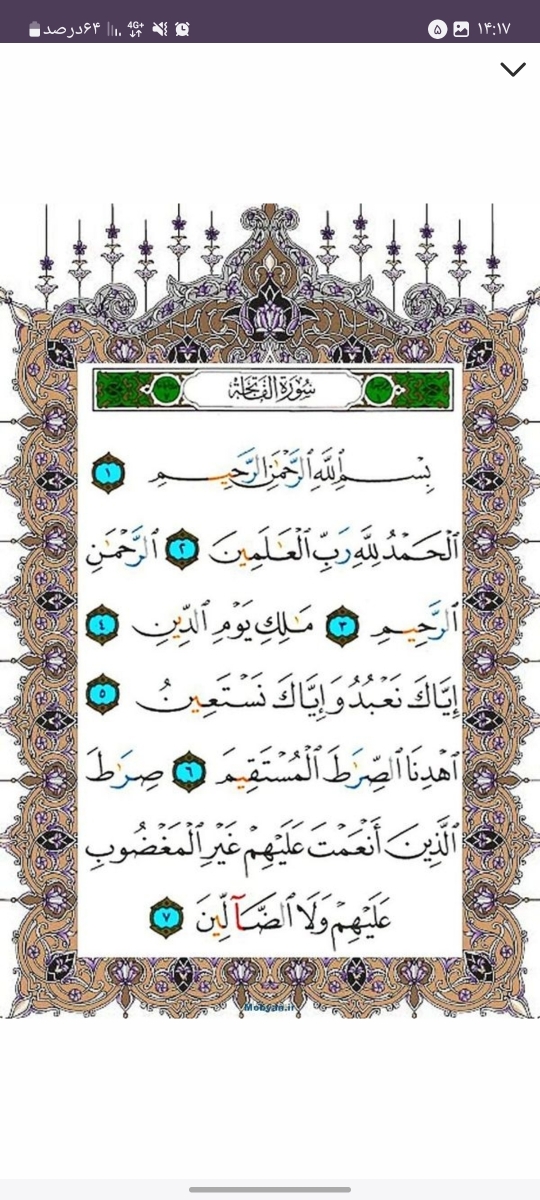 ۶۴درصد 4G+ ۵ ۱۴:۱۷
سُورَةُ الْفَاتِحَةِ
بِسْمِ ٱللَّهِ ٱلرَّحْمَٰنِ ٱلرَّحِيمِ ١
ٱلْحَمْدُ لِلَّهِ رَبِّ ٱلْعَٰلَمِينَ ٢ ٱلرَّحْمَٰنِ
ٱلرَّحِيمِ ٣ مَٰلِكِ يَوْمِ ٱلدِّينِ ٤
إِيَّاكَ نَعْبُدُ وَإِيَّاكَ نَسْتَعِينُ ٥
ٱهْدِنَا ٱلصِّرَٰطَ ٱلْمُسْتَقِيمَ ٦ صِرَٰطَ
ٱلَّذِينَ أَنْعَمْتَ عَلَيْهِمْ غَيْرِ ٱلْمَغْضُوبِ
عَلَيْهِمْ وَلَا ٱلضَّآلِّينَ ٧